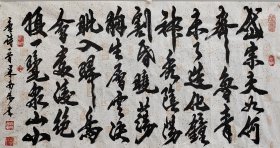 岱宗夫如何
齊魯青
未了造化鍾
神秀陰陽
割昏曉蕩
胸生層雲決
眦入歸鳥
會當凌絕
頂一覽衆山小